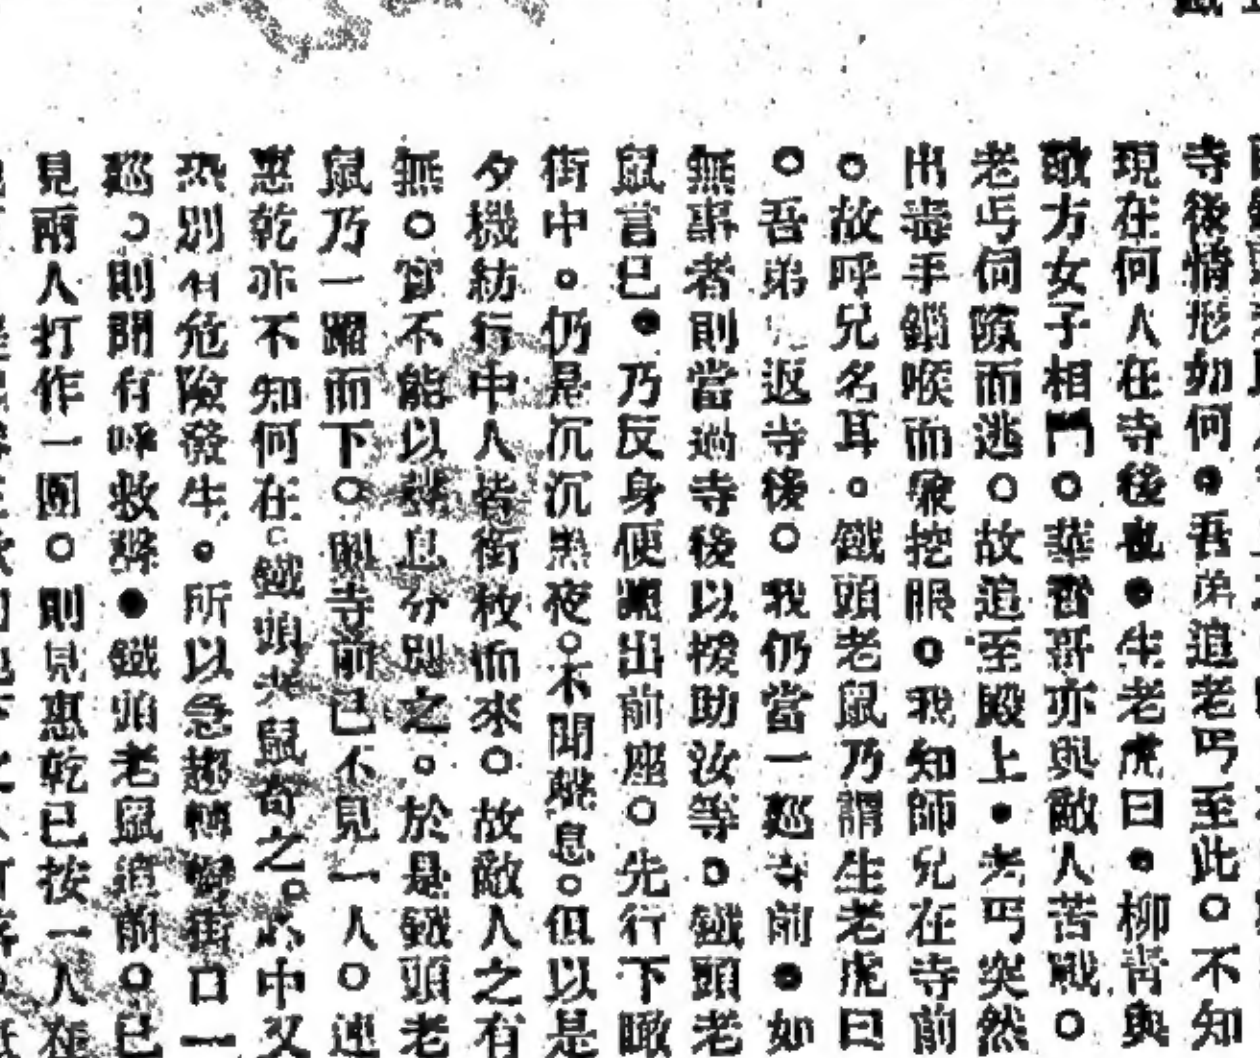 寺後情形如何。吾弟追老丐至此。不知
現在何人在寺後也。生老虎曰。柳青與
敵方女子相鬥。華香哥亦與敵人苦戰。
老丐伺隙而逃。故追至殿上。老丐突然
出毒手鎖喉而兼挖眼。我知師兄在寺前
。故呼兄名耳。鐵頭老鼠乃謂生老虎曰
。吾弟返寺後。我仍當一巡寺前。如
無事者則當過寺後以援助汝等。鐵頭老
鼠言已。乃反身便躍出前座。先行下瞰
街中。仍是沉沉黑夜。不聞聲息。但以是
夕機紡行中人皆銜枚而來。故敵人之有
無。實不能以聲息分別之。於是鐵頭老
鼠乃一躍而下。則寺前已不見一人。連
惠乾亦不知何在。鐵頭老鼠奇之。心中又
恐別有危險發生。所以急趨轉橫街口一
巡。則聞有呼救聲。鐵頭老鼠追前。已
見兩人打作一團。則見惠乾已按一人在